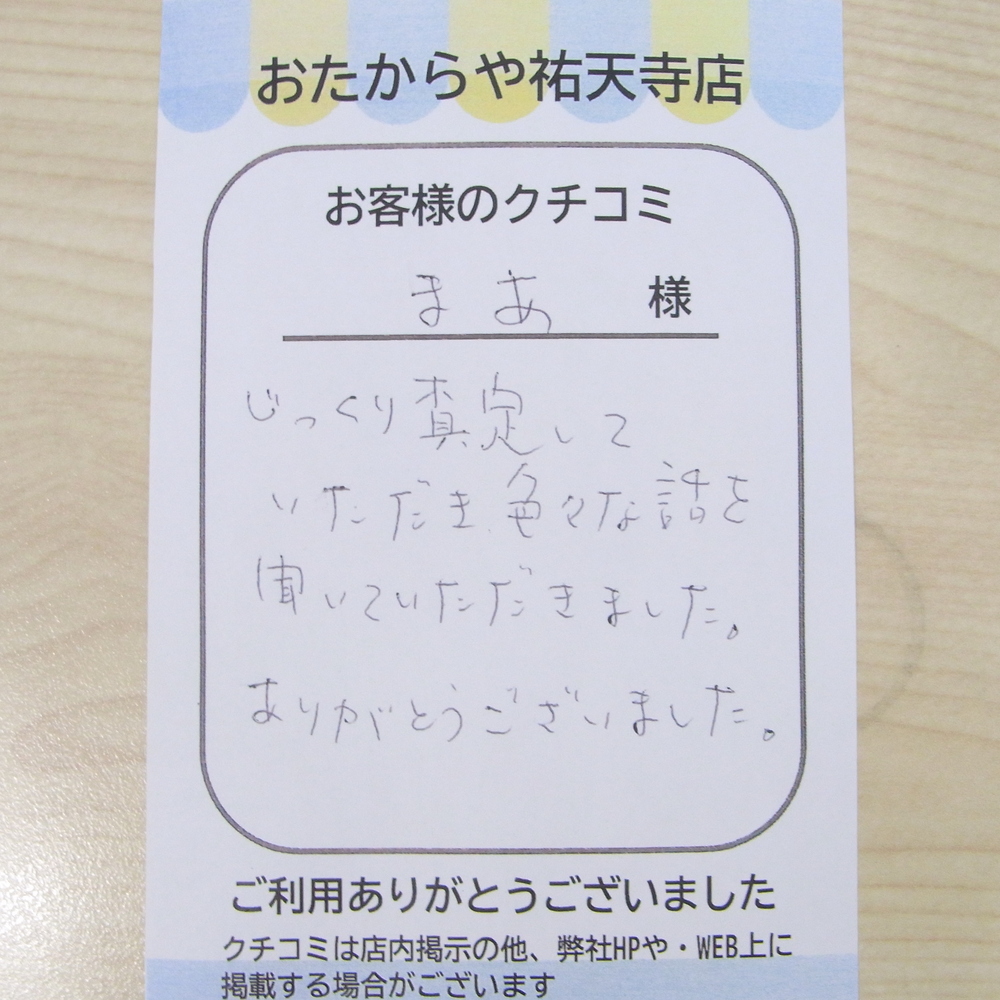 おたからや祐天寺店
お客様のクチコミ
まあ 様
じっくり査定して
いただき色々な話を
聞いていただきました。
ありがとうございました。
ご利用ありがとうございました
クチコミは店内掲示の他、弊社HPや・WEB上に
掲載する場合がございます